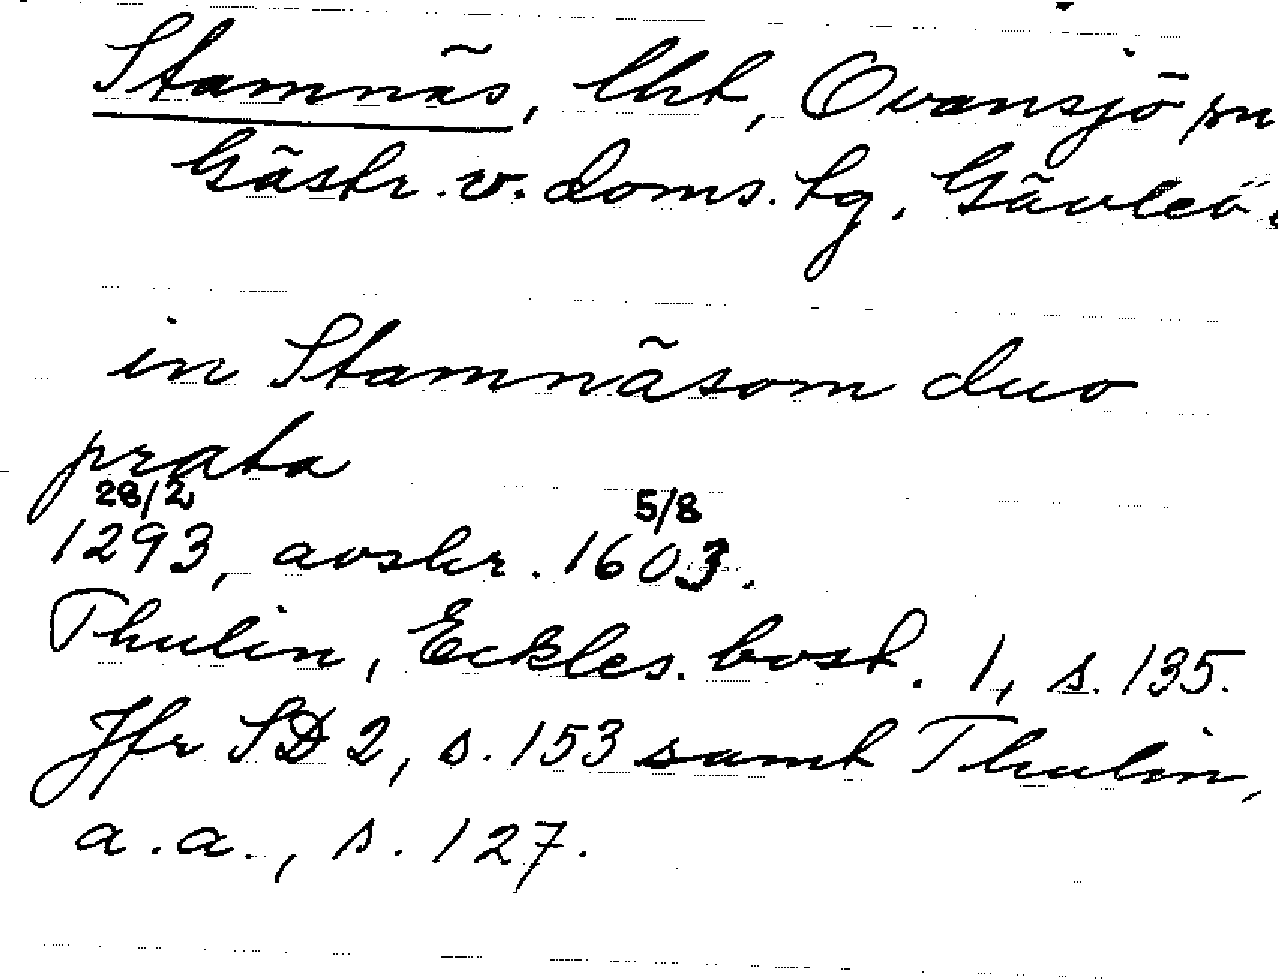 Stamnäs, lht, Ovansjö sn
Gästr. v. doms. tg, Gävleb.
in Stamnäsom duo
prata
28/2 5/8
1293, avskr. 1603.
Thulin, Eckles. bost. 1, s. 135.
Jfr SD 2, s. 153 samt Thulin,
a.a., s. 127.